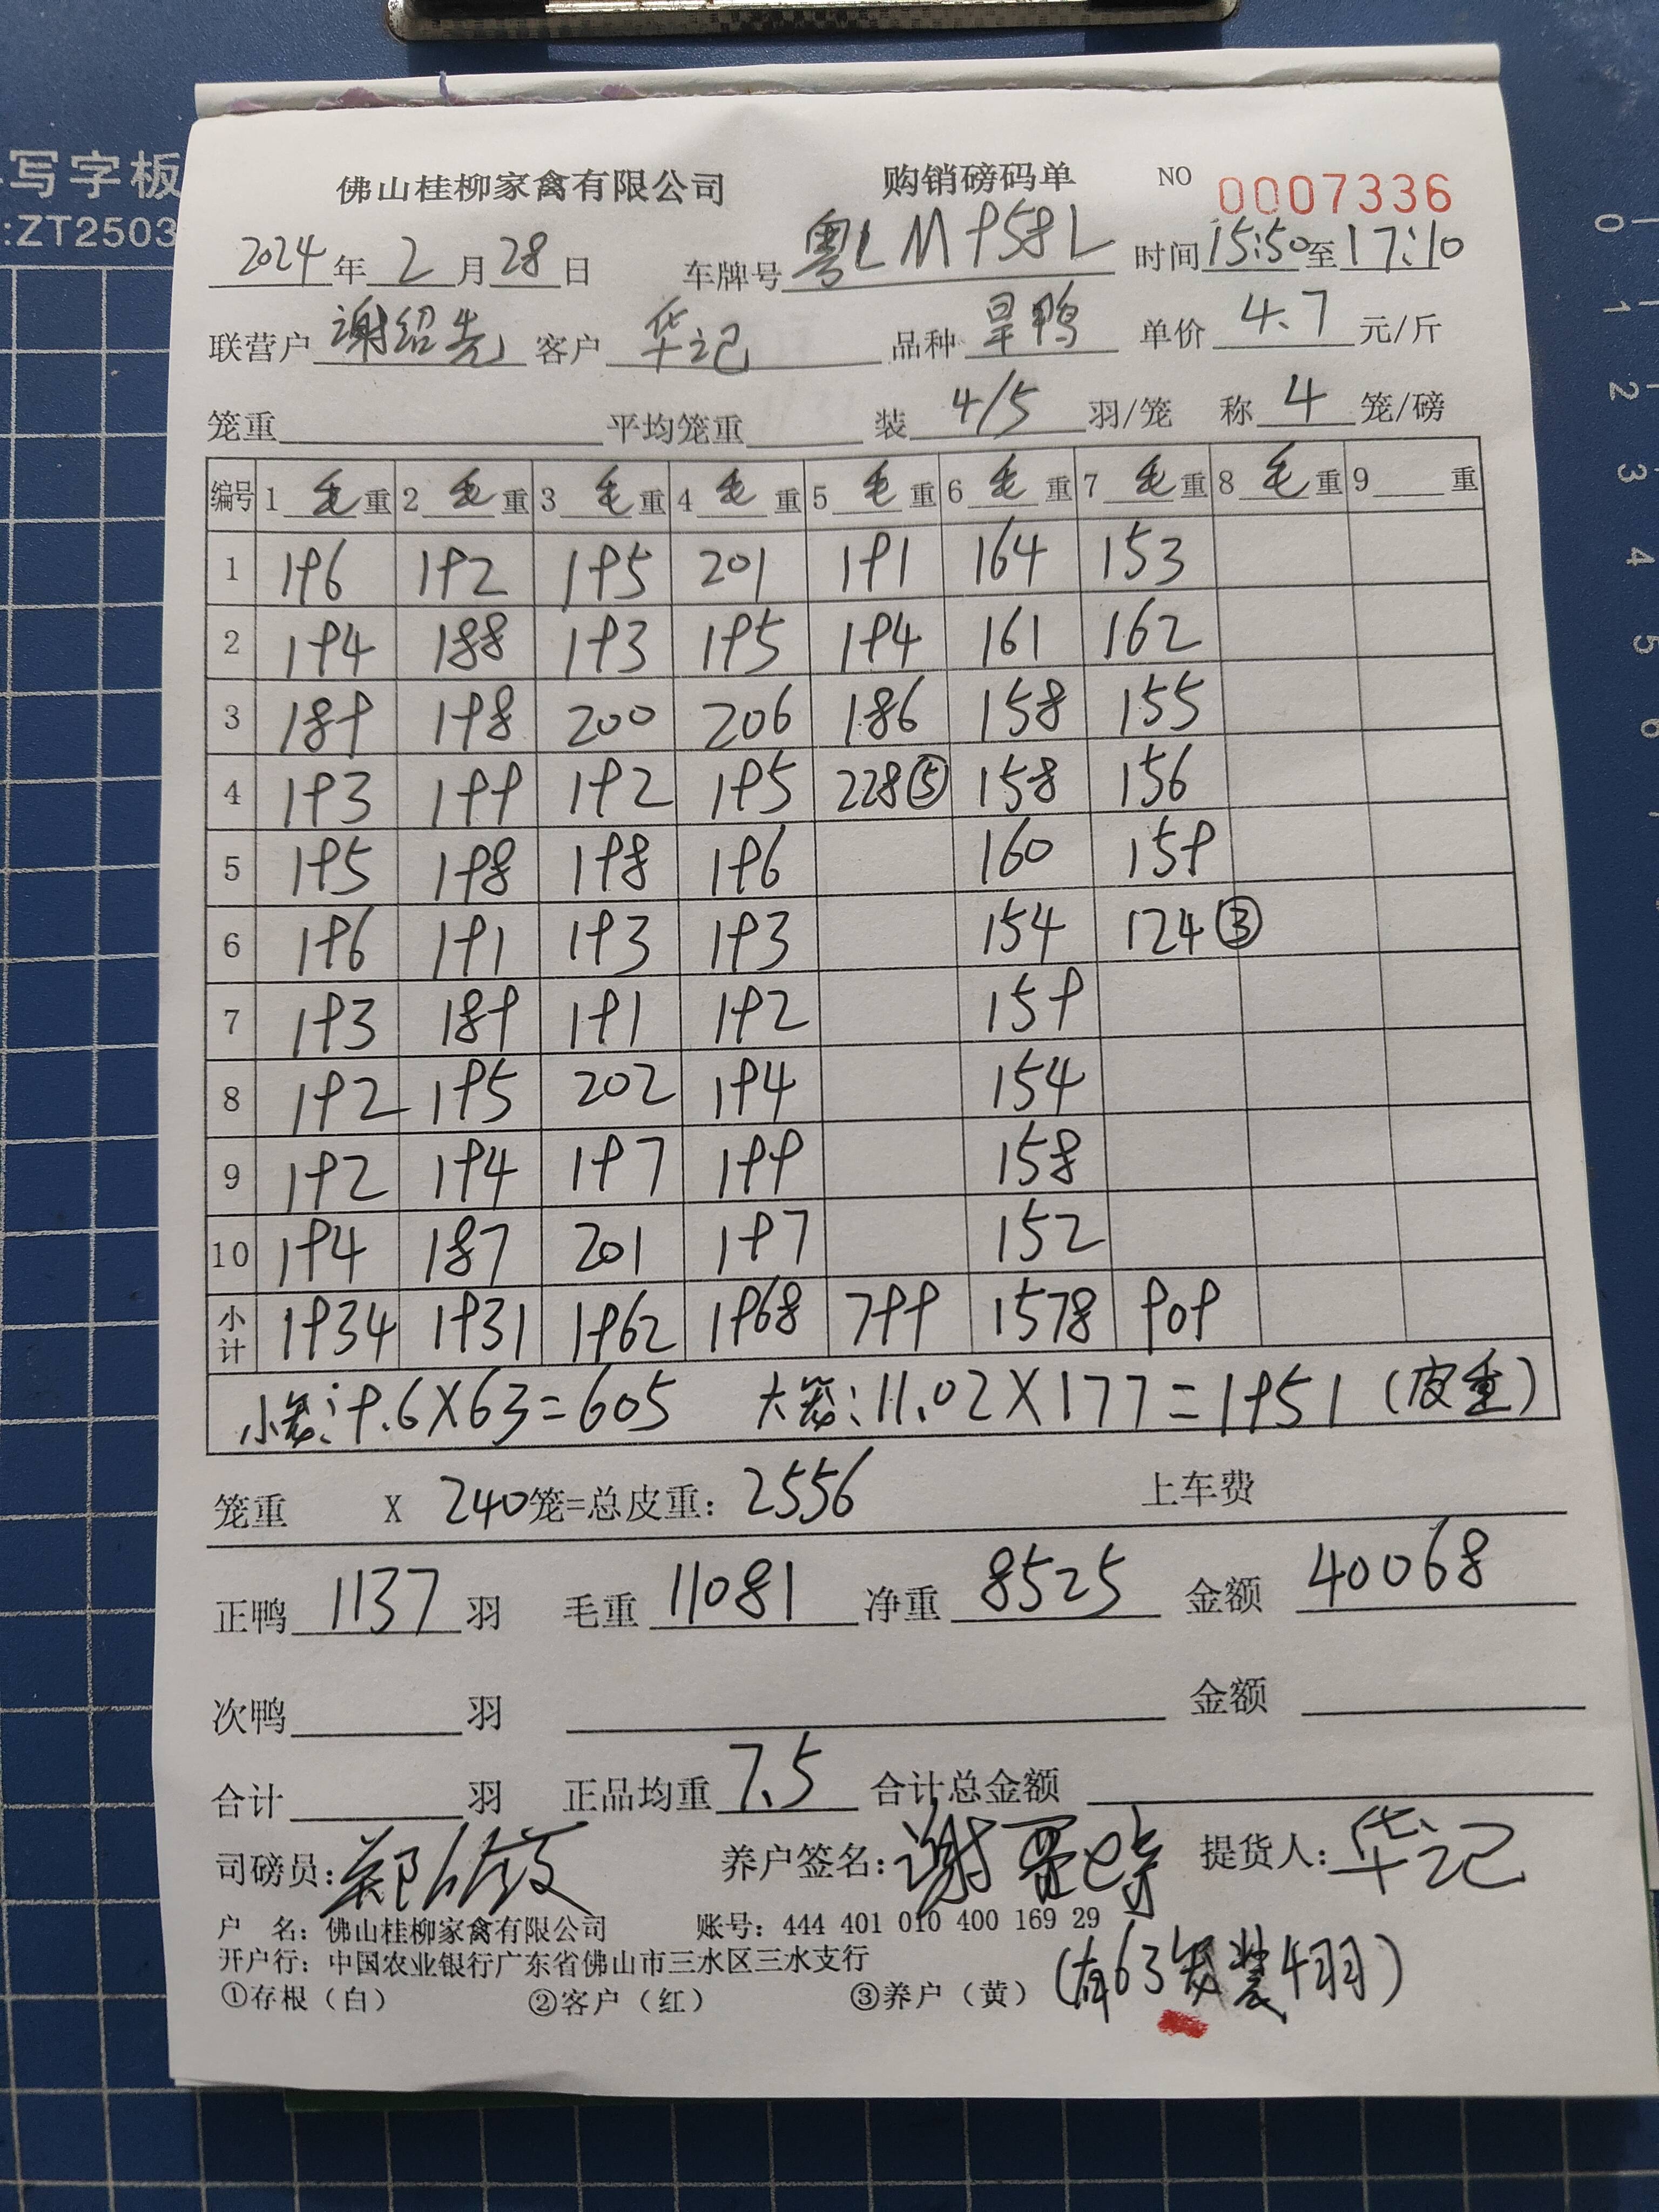 写字板
:ZT2503
0 1 2 3 4 5 6 7
佛山桂柳家禽有限公司 购销磅码单 NO 0007336
2024年2月28日 车牌号 粤LM958L 时间15:50至17:10
联营户 谢绍先 客户 华记 品种 旱鸭 单价 4.7 元/斤
笼重 平均笼重 装 4/5 羽/笼 称 4 笼/磅
编号 1 毛 重 2 毛 重 3 毛 重 4 毛 重 5 毛 重 6 毛 重 7 毛 重 8 毛 重 9 重
1 196 192 195 201 191 164 153
2 194 188 193 195 194 161 162
3 189 198 200 206 186 158 155
4 193 199 192 195 228⑤ 158 156
5 195 198 198 196 160 159
6 196 191 193 193 154 124③
7 193 189 191 192 159
8 192 195 202 194 154
9 192 194 197 199 158
10 194 187 201 197 152
小计 1934 1931 1962 1968 799 1578 909
小笼:9.6X63=605 大笼:11.02X177=1951(皮重)
笼重 X 240笼=总皮重: 2556 上车费
正鸭 1137 羽 毛重 11081 净重 8525 金额 40068
次鸭 羽 金额
合计 羽 正品均重 7.5 合计总金额
司磅员: 养户签名: 提货人:华记
户 名:佛山桂柳家禽有限公司 账号:444 401 010 400 169 29
开户行:中国农业银行广东省佛山市三水区三水支行
①存根(白) ②客户(红) ③养户(黄) (有63笼装4羽)